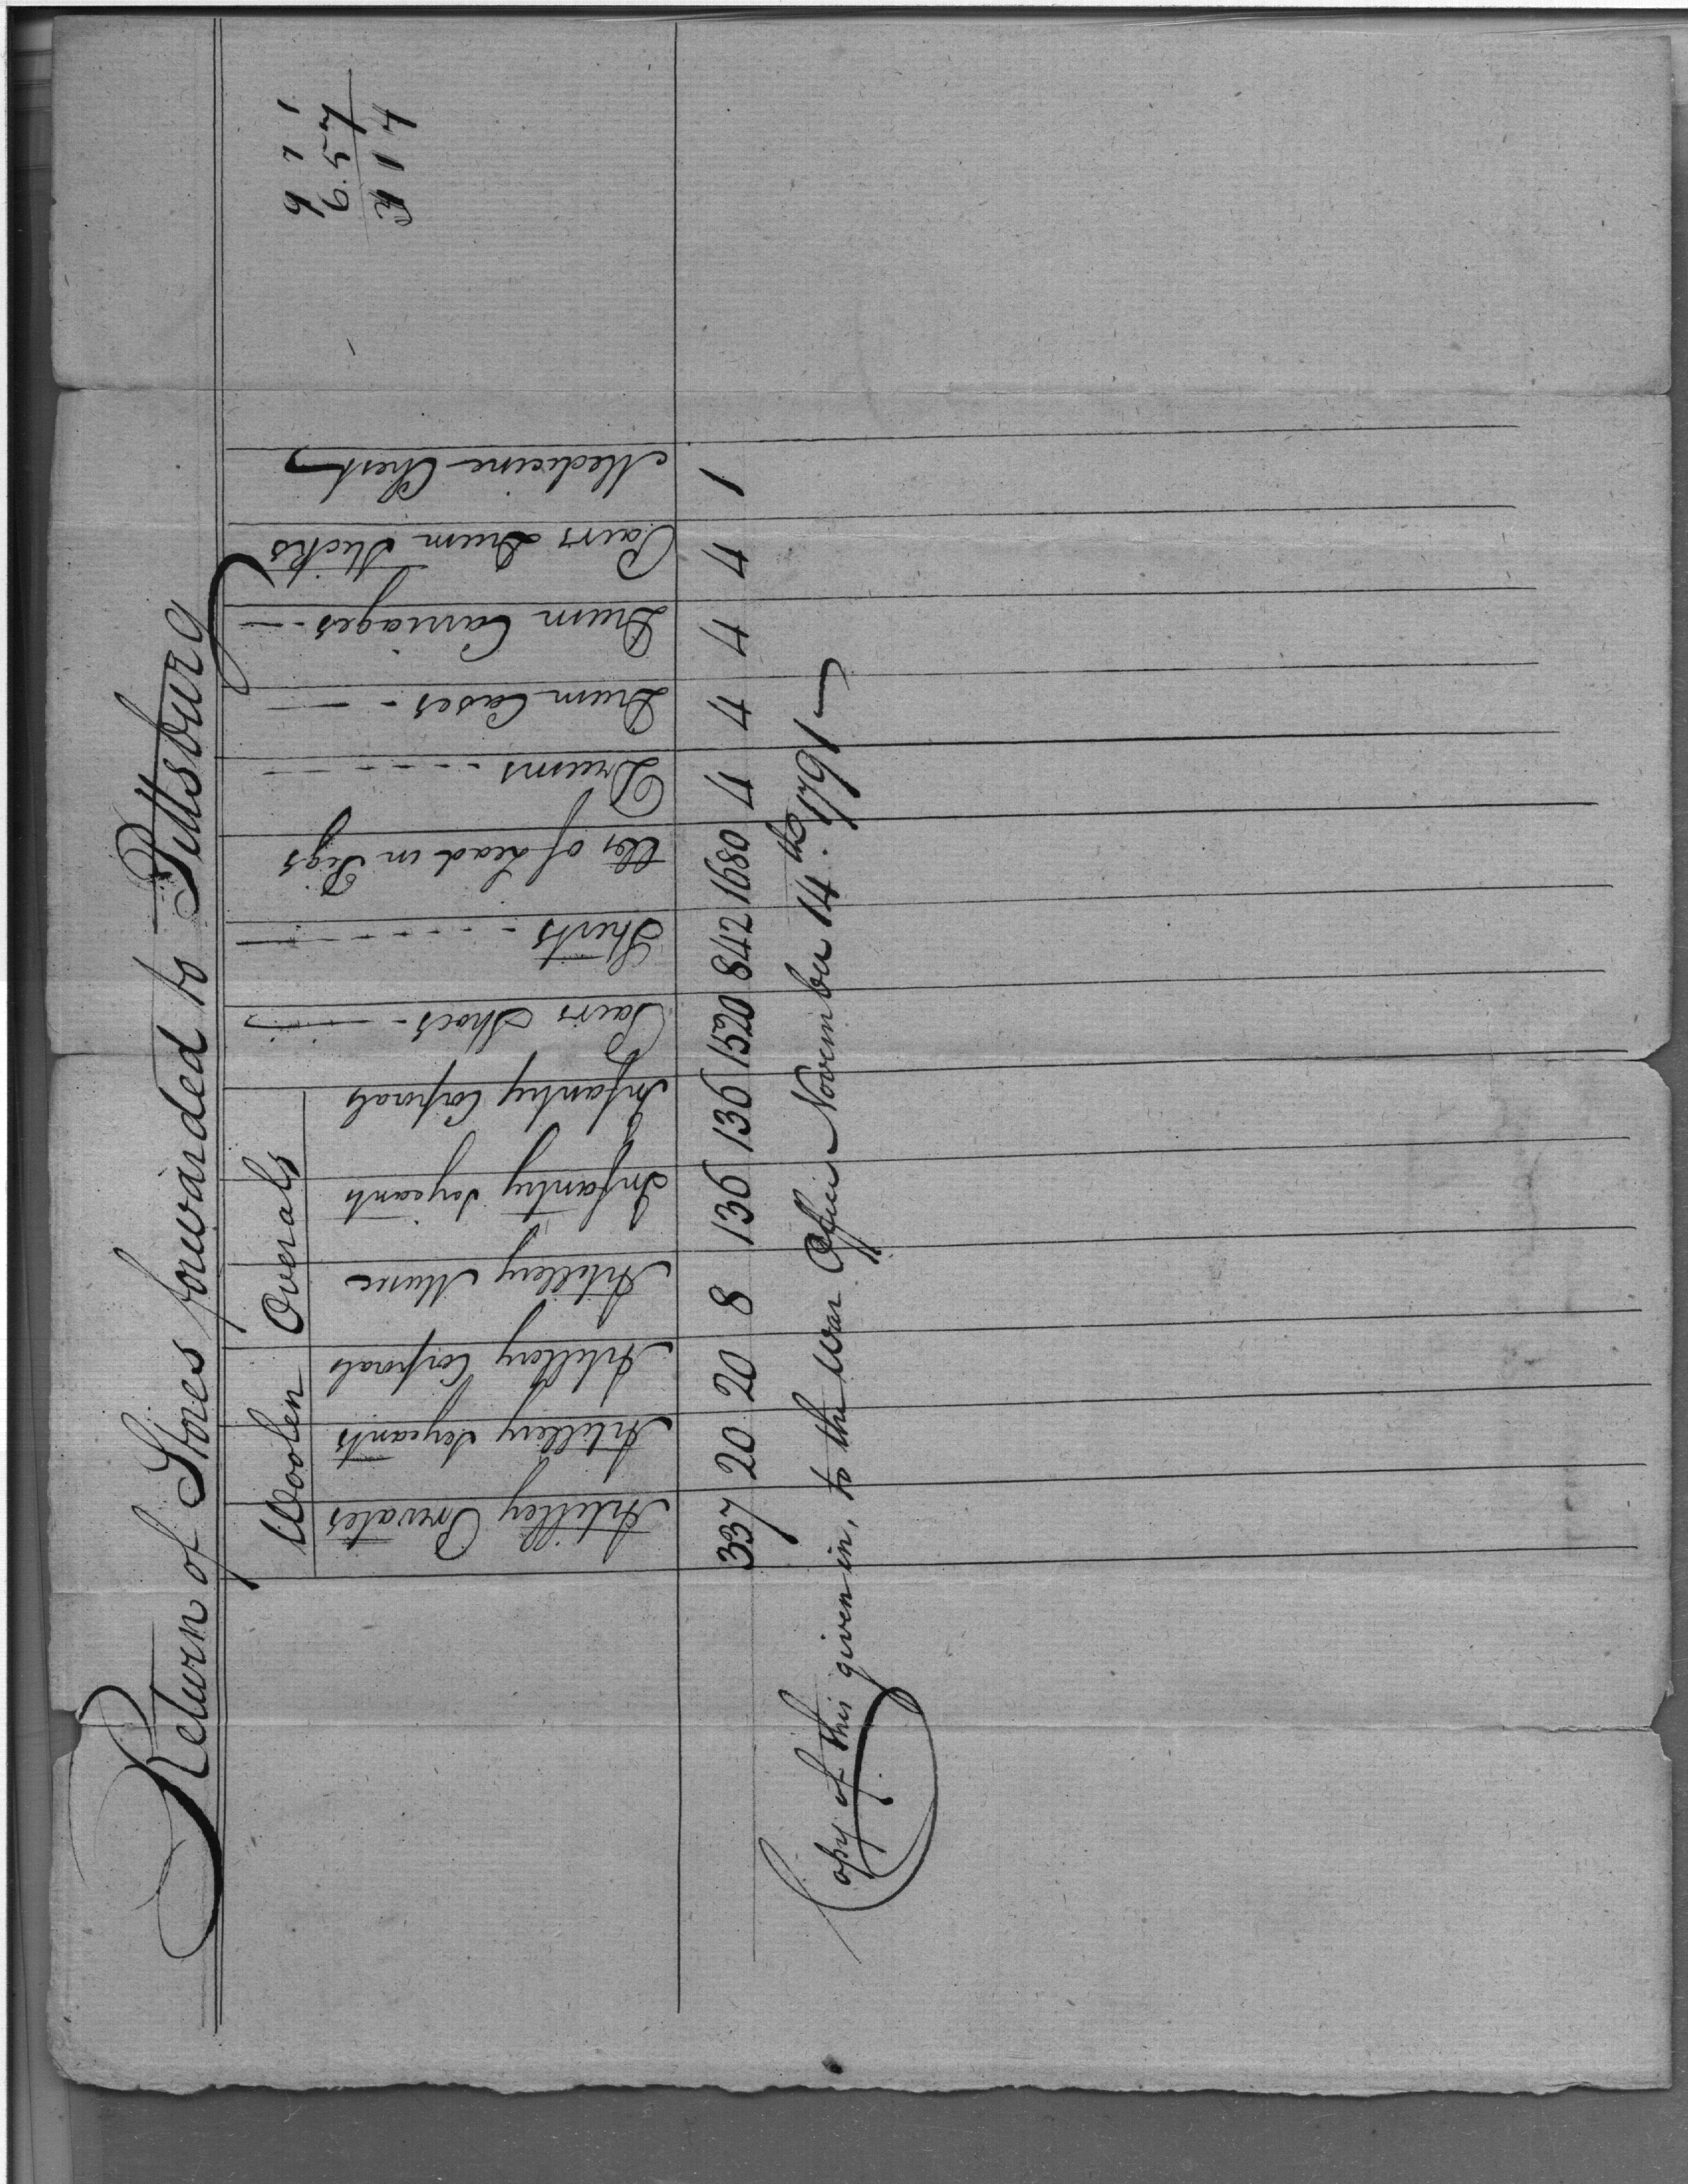 Return of Stores forwarded to Pittsburg
Woolen Overals
Artilley Privates
Artillery Serjeants
Artillery Corporals
Artillery Music
Infantry Serjeants
Infantry Corporals
Pairs Shoes
Shirts
lbs of Lead in Pigs
Drums
Drum Cases
Drum Carriages
Pairs Drum Sticks
Medicine Chest
337 20 20 8 136 136 1520 842 1680 4 4 4 4 1
Copy of this given in, to the War Office November 14.th 1791
6.57